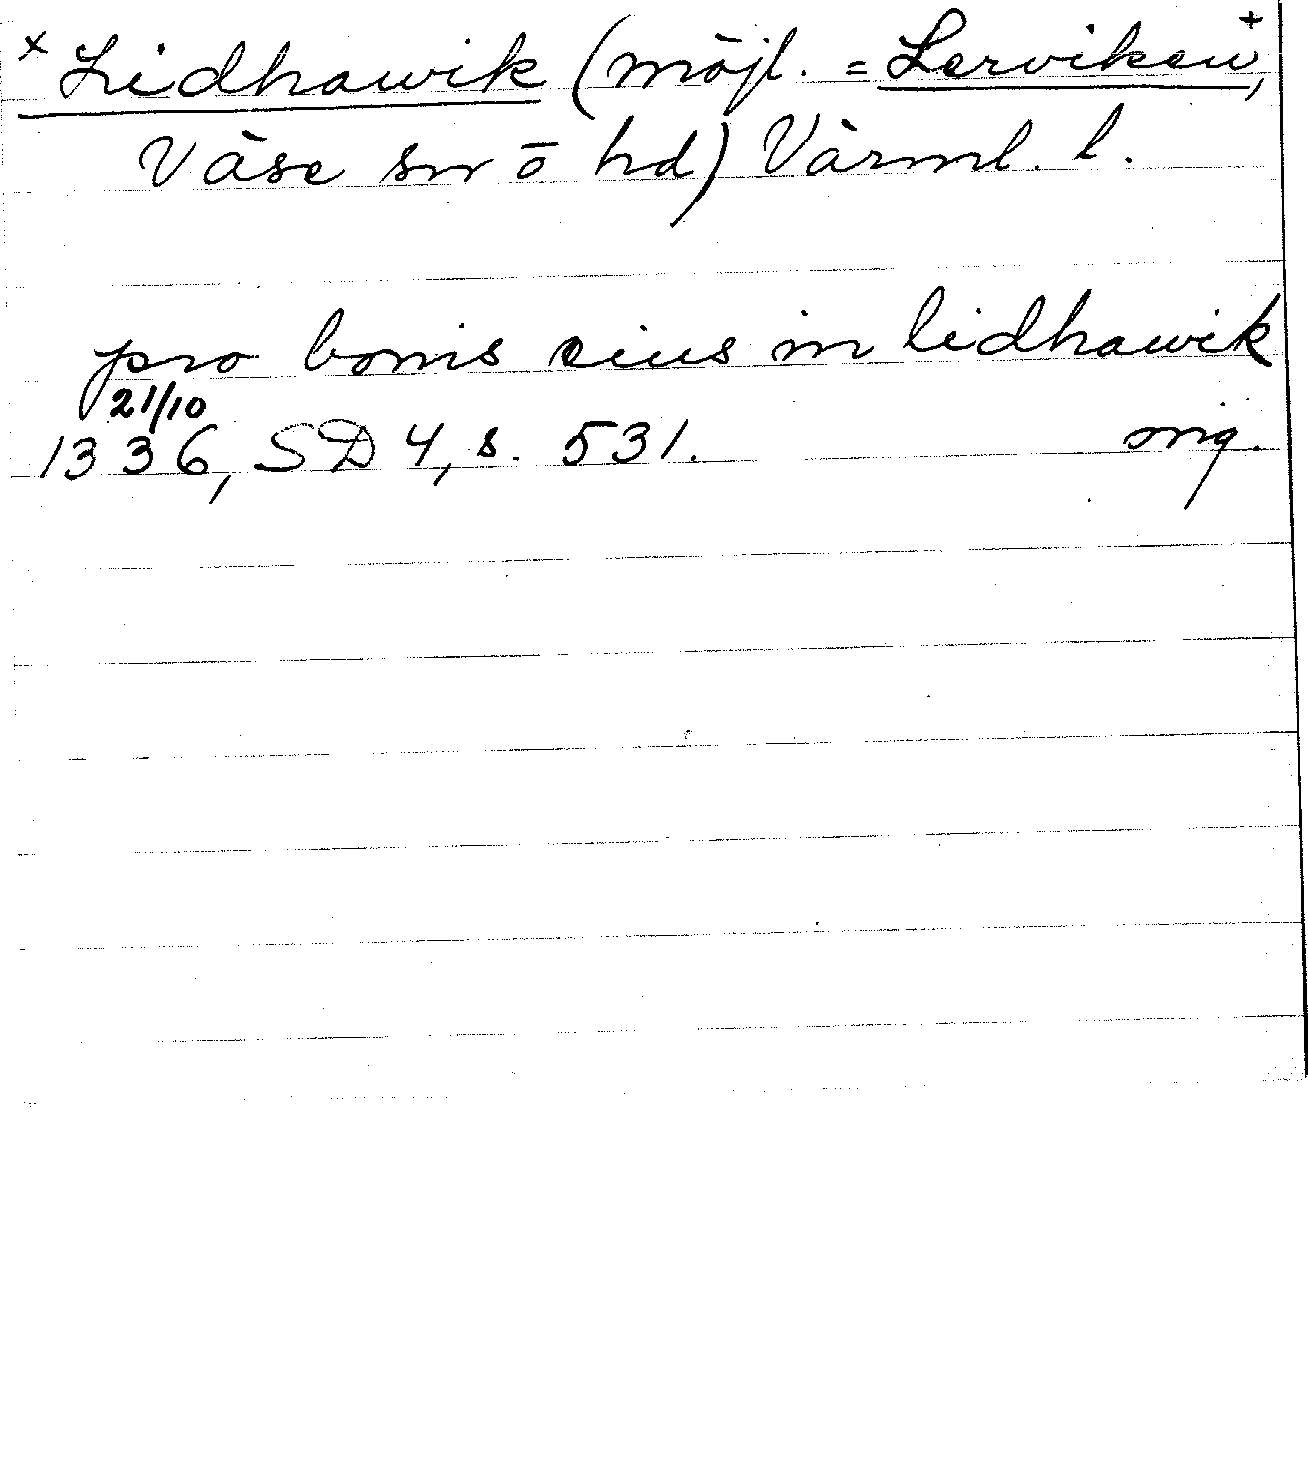 x Lidhawik (möjl. = Lerviken+,
Väse sn ō hd) Värml. l.
pro bonis eius in lidhawik
21/10
1336, SD 4, s. 531. orig.